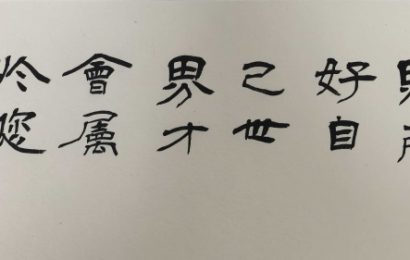 好自
己世
界才
會屬
於您